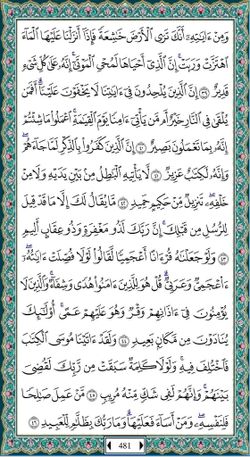 وَمِنْ ءَايَٰتِهِۦٓ أَنَّكَ تَرَى ٱلْأَرْضَ خَٰشِعَةً فَإِذَآ أَنزَلْنَا عَلَيْهَا ٱلْمَآءَ
ٱهْتَزَّتْ وَرَبَتْ ۚ إِنَّ ٱلَّذِىٓ أَحْيَاهَا لَمُحْىِ ٱلْمَوْتَىٰٓ ۚ إِنَّهُۥ عَلَىٰ كُلِّ شَىْءٍ
قَدِيرٌ ٣٩ إِنَّ ٱلَّذِينَ يُلْحِدُونَ فِىٓ ءَايَٰتِنَا لَا يَخْفَوْنَ عَلَيْنَآ ۗ أَفَمَن
يُلْقَىٰ فِى ٱلنَّارِ خَيْرٌ أَم مَّن يَأْتِىٓ ءَامِنًا يَوْمَ ٱلْقِيَٰمَةِ ۚ ٱعْمَلُوا۟ مَا شِئْتُمْ ۖ
إِنَّهُۥ بِمَا تَعْمَلُونَ بَصِيرٌ ٤٠ إِنَّ ٱلَّذِينَ كَفَرُوا۟ بِٱلذِّكْرِ لَمَّا جَآءَهُمْ ۖ
وَإِنَّهُۥ لَكِتَٰبٌ عَزِيزٌ ٤١ لَّا يَأْتِيهِ ٱلْبَٰطِلُ مِنۢ بَيْنِ يَدَيْهِ وَلَا مِنْ
خَلْفِهِۦ ۖ تَنزِيلٌ مِّنْ حَكِيمٍ حَمِيدٍ ٤٢ مَّا يُقَالُ لَكَ إِلَّا مَا قَدْ قِيلَ
لِلرُّسُلِ مِن قَبْلِكَ ۚ إِنَّ رَبَّكَ لَذُو مَغْفِرَةٍ وَذُو عِقَابٍ أَلِيمٍ
٤٣ وَلَوْ جَعَلْنَٰهُ قُرْءَانًا أَعْجَمِيًّا لَّقَالُوا۟ لَوْلَا فُصِّلَتْ ءَايَٰتُهُۥٓ ۖ
ءَا۬عْجَمِىٌّ وَعَرَبِىٌّ ۗ قُلْ هُوَ لِلَّذِينَ ءَامَنُوا۟ هُدًى وَشِفَآءٌ ۖ وَٱلَّذِينَ لَا
يُؤْمِنُونَ فِىٓ ءَاذَانِهِمْ وَقْرٌ وَهُوَ عَلَيْهِمْ عَمًى ۚ أُو۟لَٰٓئِكَ
يُنَادَوْنَ مِن مَّكَانٍۭ بَعِيدٍ ٤٤ وَلَقَدْ ءَاتَيْنَا مُوسَى ٱلْكِتَٰبَ
فَٱخْتُلِفَ فِيهِ ۗ وَلَوْلَا كَلِمَةٌ سَبَقَتْ مِن رَّبِّكَ لَقُضِىَ
بَيْنَهُمْ ۚ وَإِنَّهُمْ لَفِى شَكٍّ مِّنْهُ مُرِيبٍ ٤٥ مَّنْ عَمِلَ صَٰلِحًا
فَلِنَفْسِهِۦ ۖ وَمَنْ أَسَآءَ فَعَلَيْهَا ۗ وَمَا رَبُّكَ بِظَلَّٰمٍ لِّلْعَبِيدِ ٤٦
481